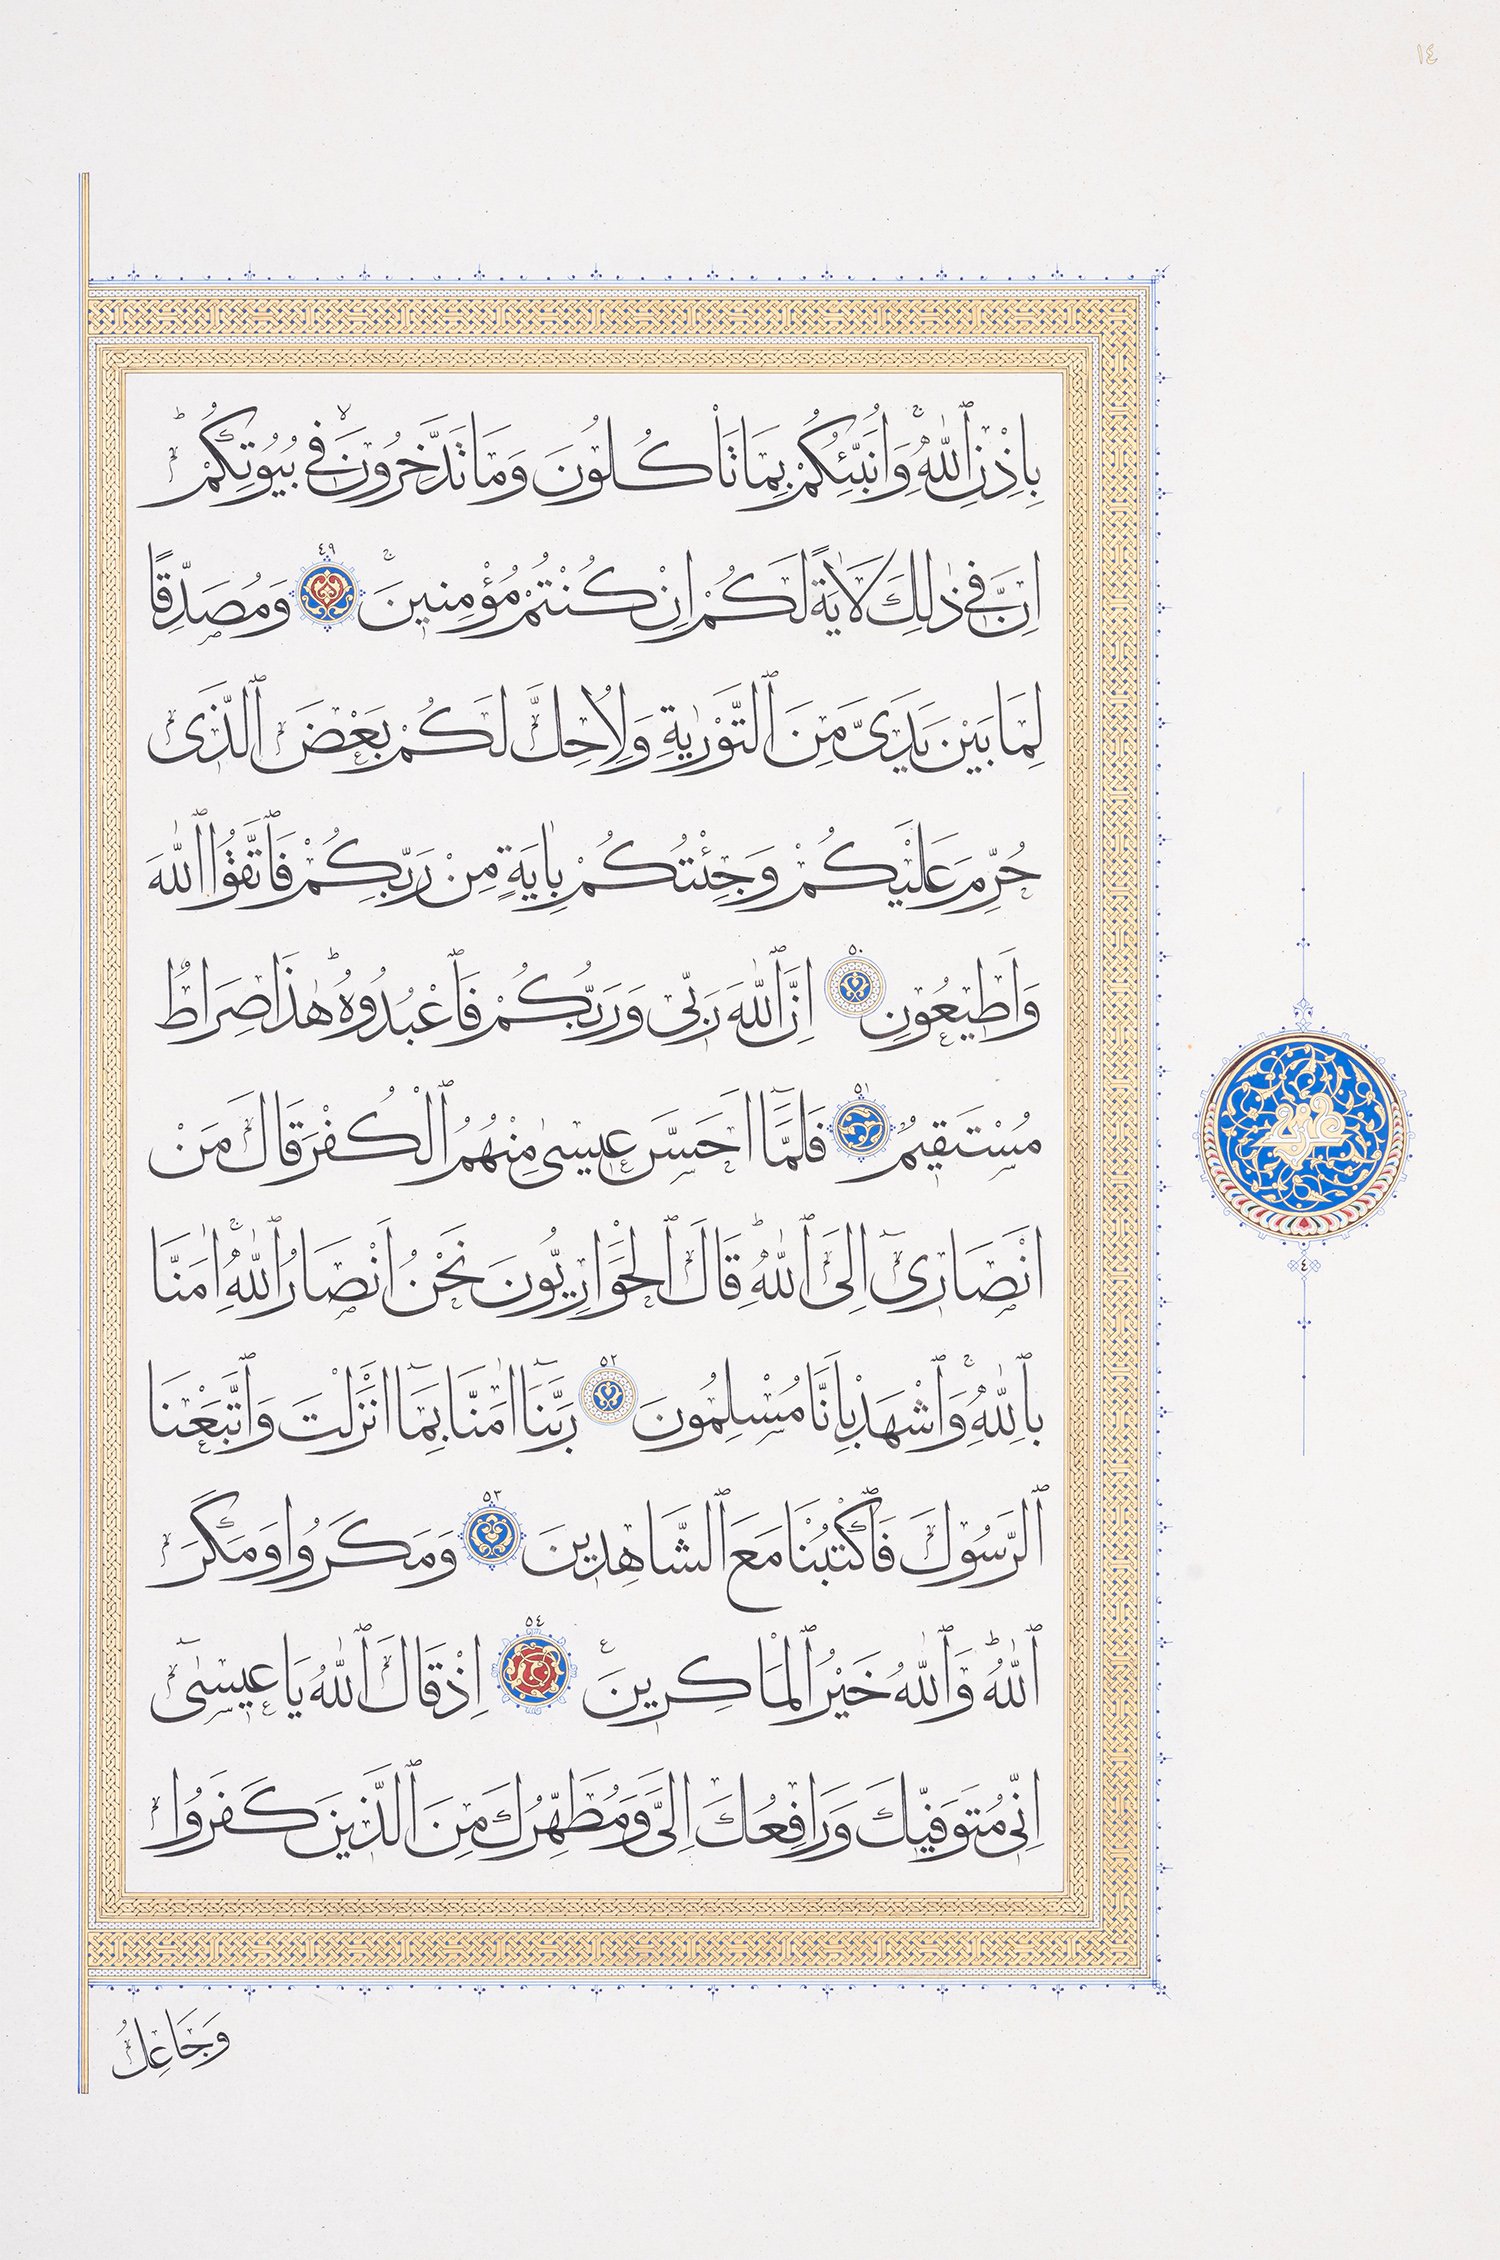 ١٤
بِاِذْنِ ٱللّٰهِۚ وَاُنَبِّئُكُمْ بِمَا تَاْكُلُونَ وَمَا تَدَّخِرُونَۙ فِى بُيُوتِكُمْؕ
اِنَّ فِى ذٰلِكَ لَاٰيَةً لَكُمْ اِنْ كُنْتُمْ مُؤْمِنِينَۚ ٤٩ وَمُصَدِّقًا
لِمَا بَيْنَ يَدَىَّ مِنَ ٱلتَّوْرٰيةِ وَلِاُحِلَّ لَكُمْ بَعْضَ ٱلَّذِى
حُرِّمَ عَلَيْكُمْ وَجِئْتُكُمْ بِاٰيَةٍ مِنْ رَبِّكُمْ فَٱتَّقُوا ٱللّٰهَ
وَاَطِيعُونِ ٥٠ اِنَّ ٱللّٰهَ رَبِّى وَرَبُّكُمْ فَٱعْبُدُوهُؕ هٰذَا صِرَاطٌ
مُسْتَقِيمٌ ٥١ فَلَمَّٓا اَحَسَّ عِيسٰى مِنْهُمُ ٱلْكُفْرَ قَالَ مَنْ
اَنْصَارِىٓ اِلَى ٱللّٰهِؕ قَالَ ٱلْحَوَارِيُّونَ نَحْنُ اَنْصَارُ ٱللّٰهِۚ اٰمَنَّا
بِٱللّٰهِۚ وَٱشْهَدْ بِاَنَّا مُسْلِمُونَ ٥٢ رَبَّنَٓا اٰمَنَّا بِمَٓا اَنْزَلْتَ وَٱتَّبَعْنَا
ٱلرَّسُولَ فَٱكْتُبْنَا مَعَ ٱلشَّاهِدِينَ ٥٣ وَمَكَرُوا وَمَكَرَ
ٱللّٰهُؕ وَٱللّٰهُ خَيْرُ ٱلْمَاكِرِينَ ع ٥٤ اِذْ قَالَ ٱللّٰهُ يَا عِيسٰىٓ
اِنِّى مُتَوَفِّيكَ وَرَافِعُكَ اِلَىَّ وَمُطَهِّرُكَ مِنَ ٱلَّذِينَ كَفَرُوا
حزب
٤
وَجَاعِلُ